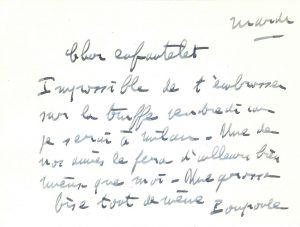 mardi
Cher enfantelet
Impossible de t'embrasser
sur la truffe vendredi car
je serai à milan - Une de
nos amies le fera d'ailleurs bien
mieux que moi - Une grosse
bise tout de même